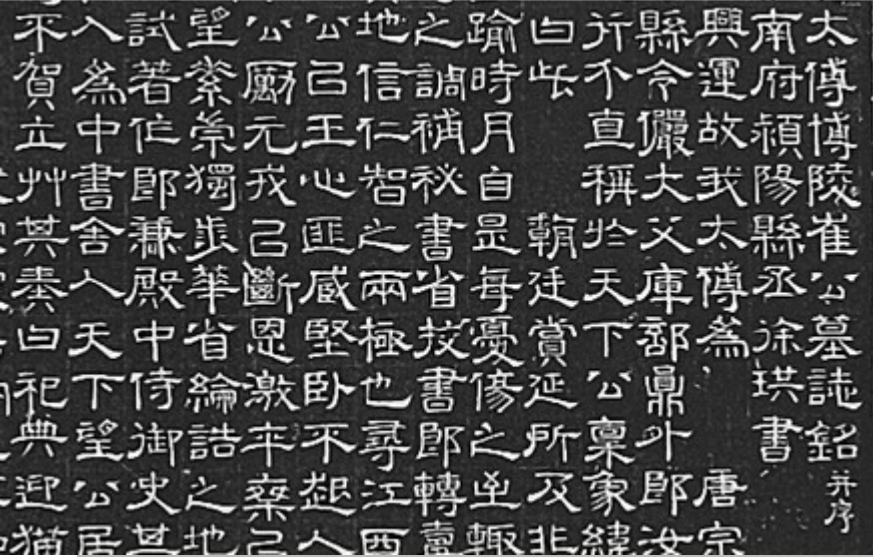 太傅博陵崔公墓誌銘并序
南府潁陽縣丞徐珙書
興運故我太傅為 唐宗
縣令儼大父庫部員外郎汶
行不直稱於天下公稟象緯
曰呰 朝廷賞延所及非
踰時月自是每憂傷之至輙
之調補秘書省挍書郎轉壽
地信仁智之兩極也尋江西
公己王心匪慼堅卧不起人
公勵元戎己斷恩激卒乘己
望素崇獨步華省綸誥之地
試著作郎兼殿中侍御史其
入為中書舍人天下望公居
不賀立艸其奏曰祀典迎猫